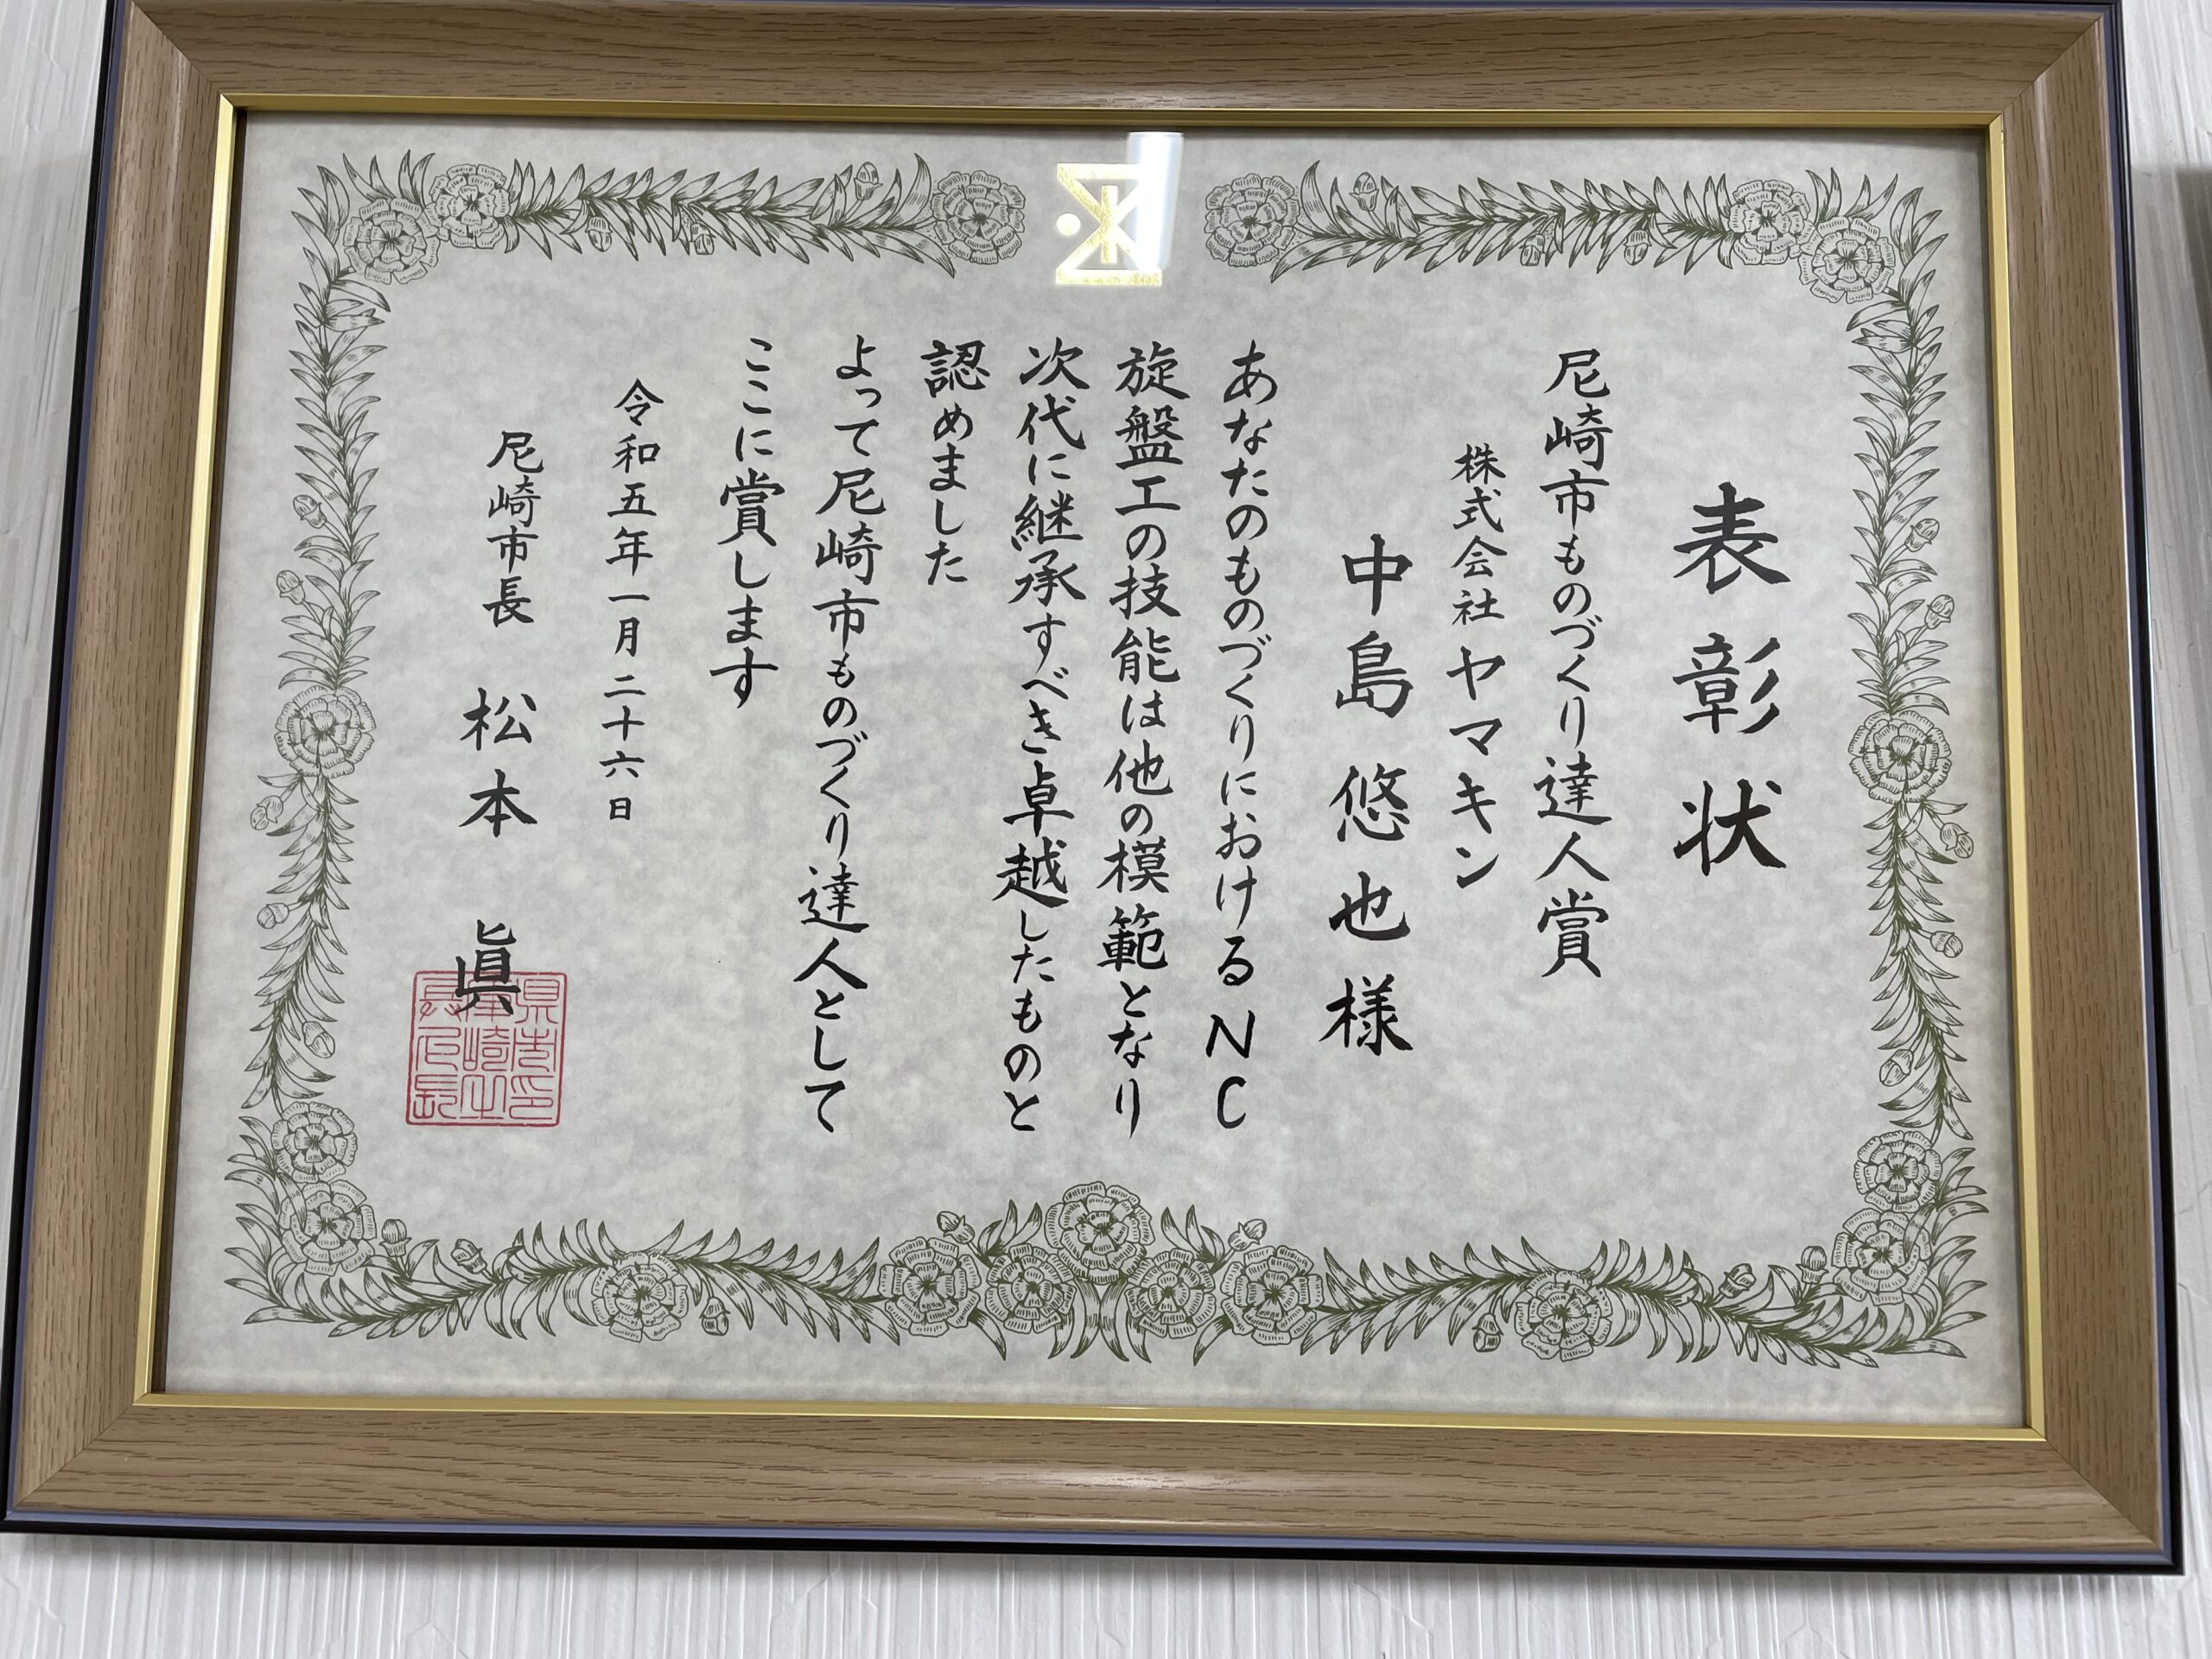 表彰状
尼崎市ものづくり達人賞
株式会社ヤマキン
中島悠也様
あなたのものづくりにおけるNC
旋盤工の技能は他の模範となり
次代に継承すべき卓越したものと
認めました
よって尼崎市ものづくり達人として
ここに賞します
令和五年一月二十六日
尼崎市長 松本 眞